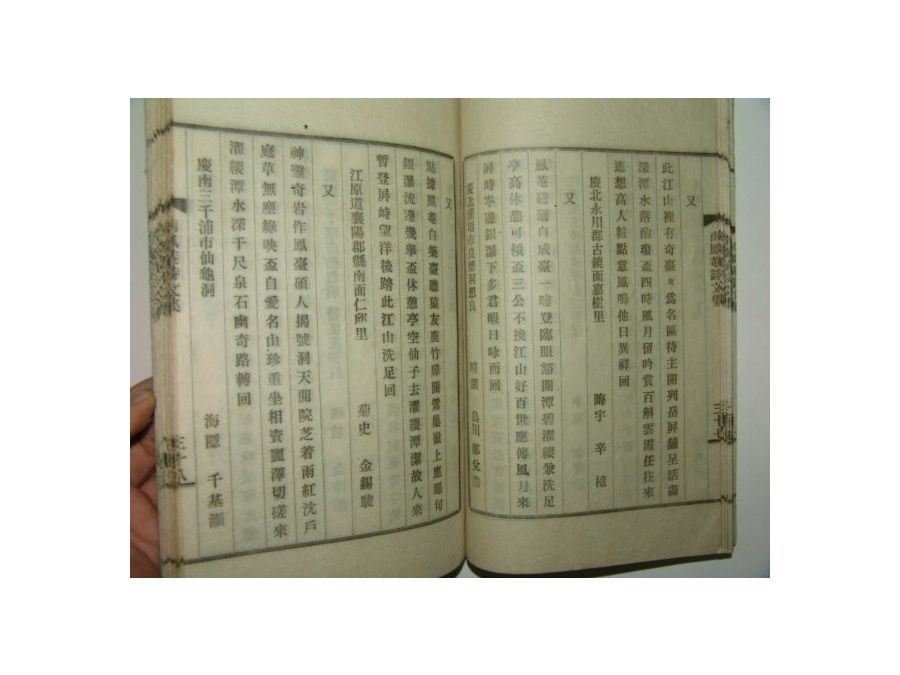 又
此江山裡有奇臺々爲名區待主開列岳屛舖呈活畵
深潭水落酌瓊盃四時風月留吟賞百斛雲霞任往來
遙想高人粧點意鳳鳴他日異祥回
慶北永川郡古鏡面嘉樹里 晦宇 辛檍
又
鳳巷磅礴自成臺一嘯登臨眼豁開潭碧濯纓兼洗足
亭高休憩可傾盃三公不換江山好百世應傳風月來
屛峙岑邊銀瀑下多君暇日咏而回
烏川
又
點據鳳巷自築臺聽琦友鹿竹扉開鶯巢嶽上應題句
銀瀑流邊幾擧盃休憩亭空仙子去濯纓潭潔故人來
暫登屛峙望洋後踏此江山洗足回
江原道襄陽郡縣南面仁邱里 菊史 金錫駿
又
神鑿奇岩作鳳臺碩人揭號洞天開院芝着雨紅沈戶
庭草無塵綠映盃自愛名山珍重坐相資麗澤切磋來
濯纓潭水深千尺泉石幽奇路轉回
慶南三千浦市仙龜洞 海隱 千基灝
三十八